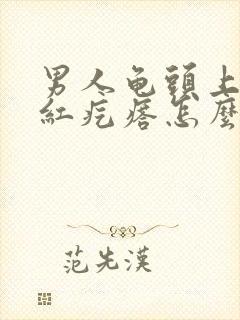 男人龟頭上
紅疙瘩怎麼
范先漢